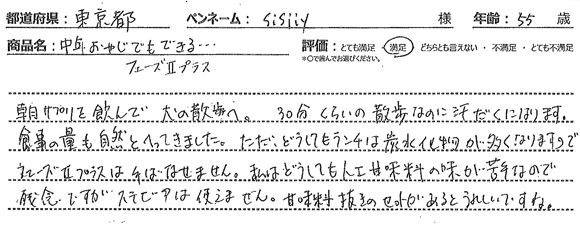 都道府県：東京都 ペンネーム：sisiiy 様 年齢：55 歳
商品名：中年おやじでもできる… 評価：とても満足・満足・どちらとも言えない・不満足・とても不満足
フェーズⅡプラス ※○で囲んでお選びください。
朝サプリを飲んで犬の散歩へ。30分くらいの散歩なのに汗だくになります。
食事の量も自然とへってきました。ただ、どうしてもランチは炭水化物が多くなりますので
フェーズⅡプラスは手ばなせません。私はどうしても人工甘味料の味が苦手なので
残念ですがステビアは使えません。甘味料抜きのセットがあるとうれしいですね。